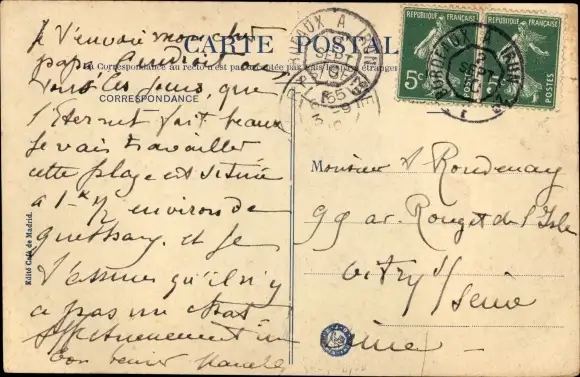 CARTE POSTALE
La Correspondance au recto n'est pas acceptée par tous les pays étrangers
CORRESPONDANCE
Je t'envoie mon cher
papa
tous les jours, que
l'Eternel fait beaux
Je vais travailler
cette plage est située
à 1 h ½ environ de
Guethary. et je
t'assure qu'il n'y
a pas un chat
Affectueusement un
bon baiser
REPUBLIQUE FRANÇAISE
REPUBLIQUE FRANÇAISE
5c
POSTES
BORDEAUX A IRUN
Monsieur A Roudenay
99 av. Rouget de l'Isle
Vitry s/
Seine
Seine
Edité Café de Madrid.